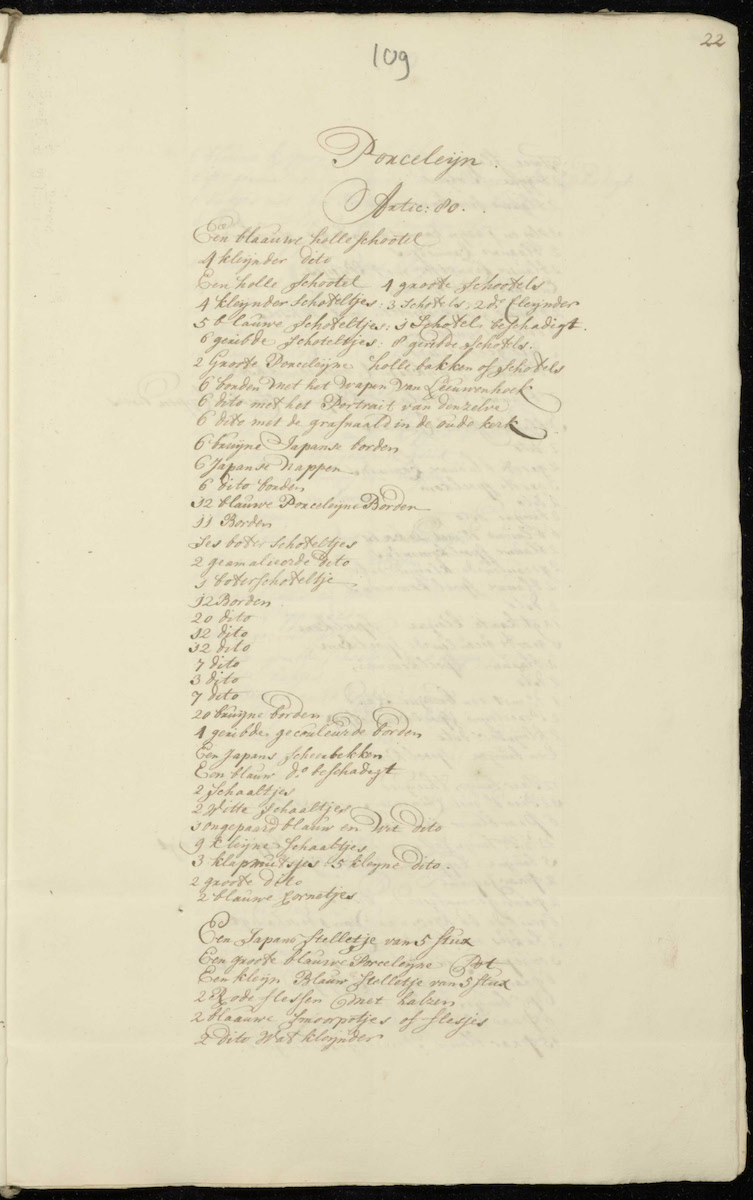 22
109
Porceleijn.
Artic: 80.
Een blaauwe holle schootel
4 kleijnder dito
Een holle schootel 4 groote schootels
4 kleijnder schoteltjes: 3 schotels; 2 do. kleijnder
5 blauwe schoteltjes: 1 schotel beschadigt.
6 geribde schoteltjes: 8 geribde schotels.
2 Groote Porceleijne holle bakken of schotels
6 borden met het Wapen van Leeuwenhoek
6 dito met het Portrait van denzelve
6 dito met de grafnaald in de oude kerk
6 bruijne Japanse borden
6 Japanse Nappen
6 dito borden
12 blauwe Porceleijne Borden
11 Borden
Ses boter schoteltjes
2 geamaleerde dito
1 boterschoteltje
12 Borden
20 dito
12 dito
12 dito
7 dito
3 dito
7 dito
20 bruijne borden
4 geribde gecouleurde borden
Een Japans scheerbekken
Een blauw do beschadigt
2 schaaltjes
2 Witte schaaltjes
3 ongepaard blauw en Wit dito
9 kleijne schaaltjes
3 klapmutsjes 5 kleijne dito.
2 groote dito
2 blauwe Cornetjes
Een Japans stelletje van 5 stux
Een groote blauwe Porceleijne Pot
Een kleijn Blauw stelletje van 5 stux
2 Rode flessen met halzen
2 blaauwe smoorpotjes of flesjes
2 dito Wat kleijnder